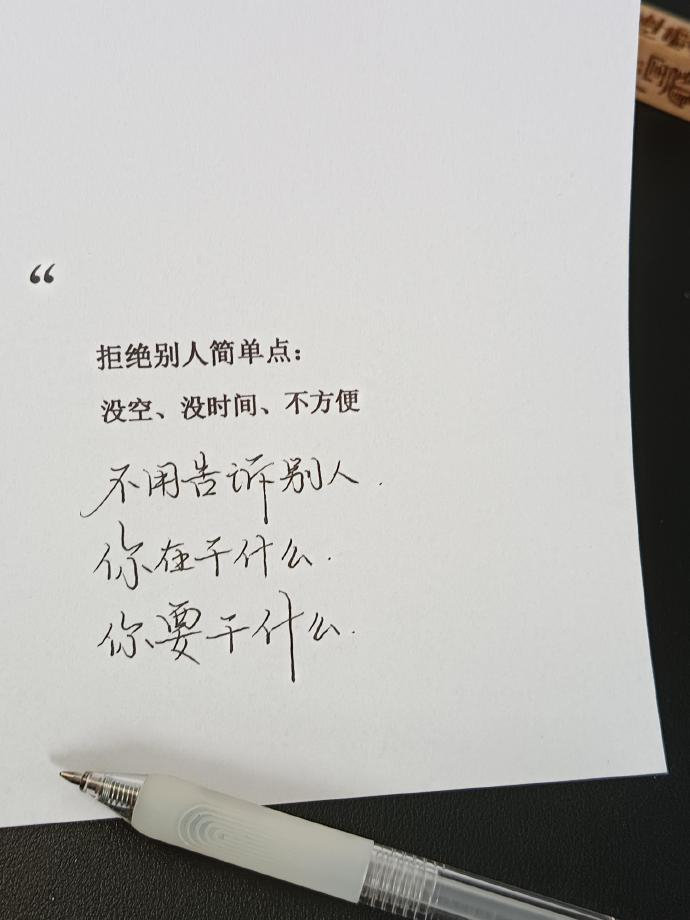 “
拒绝别人简单点：
没空、没时间、不方便
不用告诉别人.
你在干什么.
你要干什么.